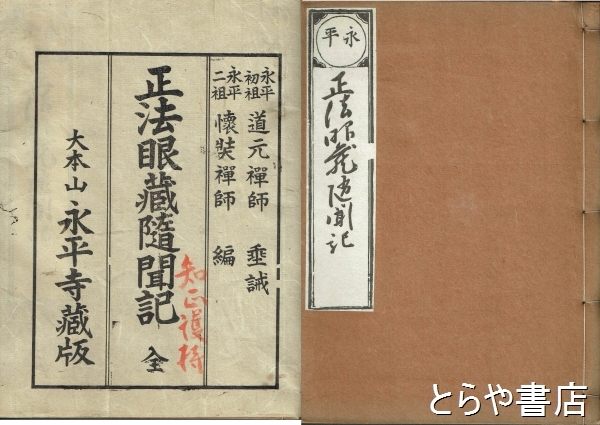 永平初祖 道元禪師 埀誡
永平二祖 懷奘禪師 編
正法眼藏隨聞記 全
知正護持
大本山 永平寺藏版
永平
正法眼藏随聞記
とらや書店